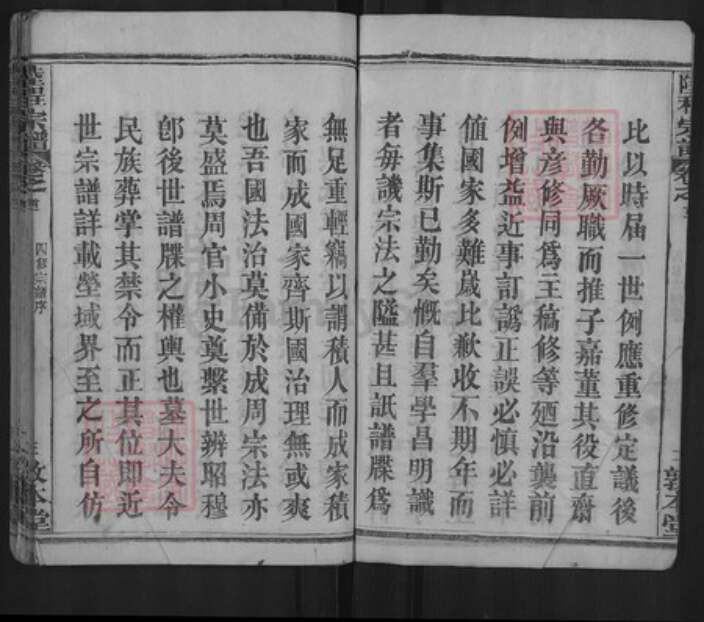 比以時屆一世例應重修定議後
各勤厥職而推子嘉董其役直齋
與彥修同為主稿修等廼沿襲前
例增益近事訂譌正誤必慎必詳
值國家多難歲比歉收不期年而
事集斯已勤矣慨自羣學昌明識
者每譏宗法之隘甚且詆譜牒為
無足重輕竊以謂積人而成家積
家而成國家齊斯國治理無或爽
也吾國法治莫備於成周宗法亦
莫盛焉周官小史奠繫世辨昭穆
卽後世譜牒之權輿也墓大夫令
民族葬掌其禁令而正其位即近
世宗譜詳載塋域界至之所自仿
四修宗譜序
敦本堂
敦本堂